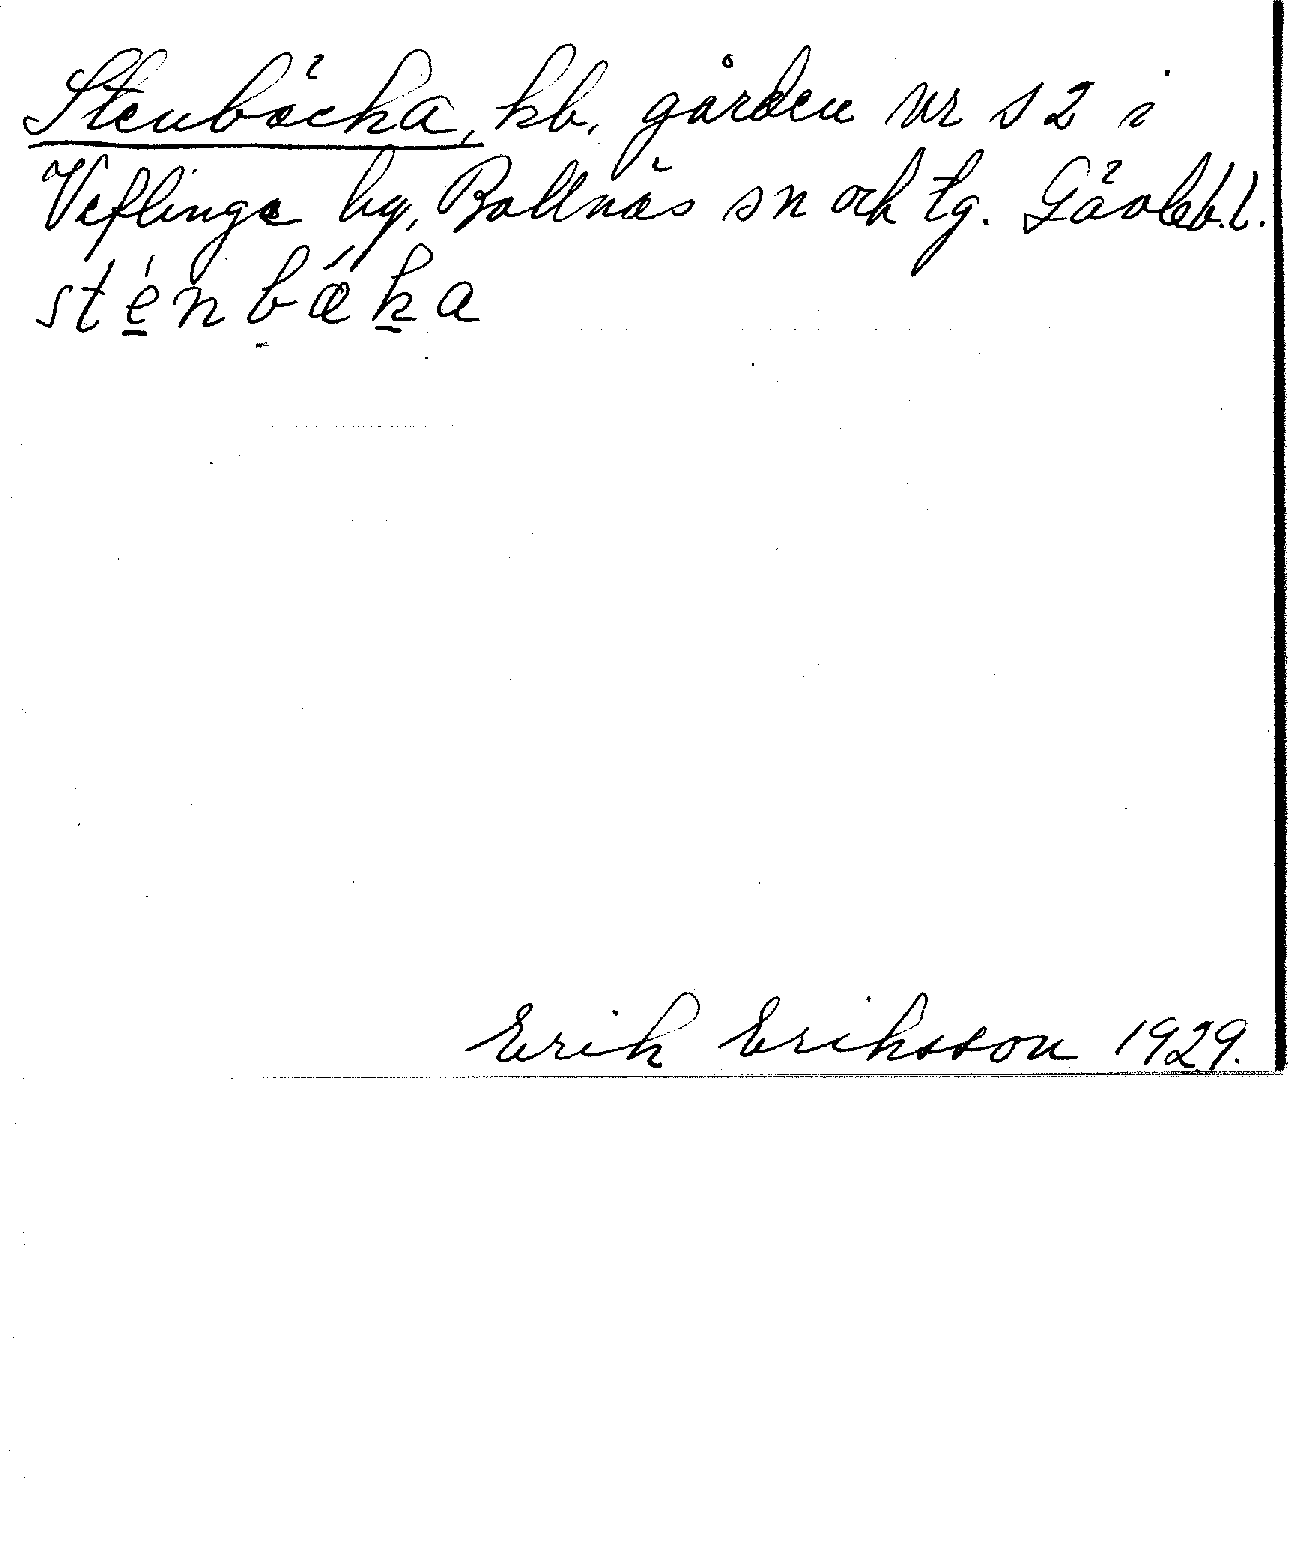 Stenbäcka, kb. gården nr s 2 i
Veflinge by, Bollnäs sn och tg. Gävleb.l.
sténbǽka
Erik Eriksson 1929.